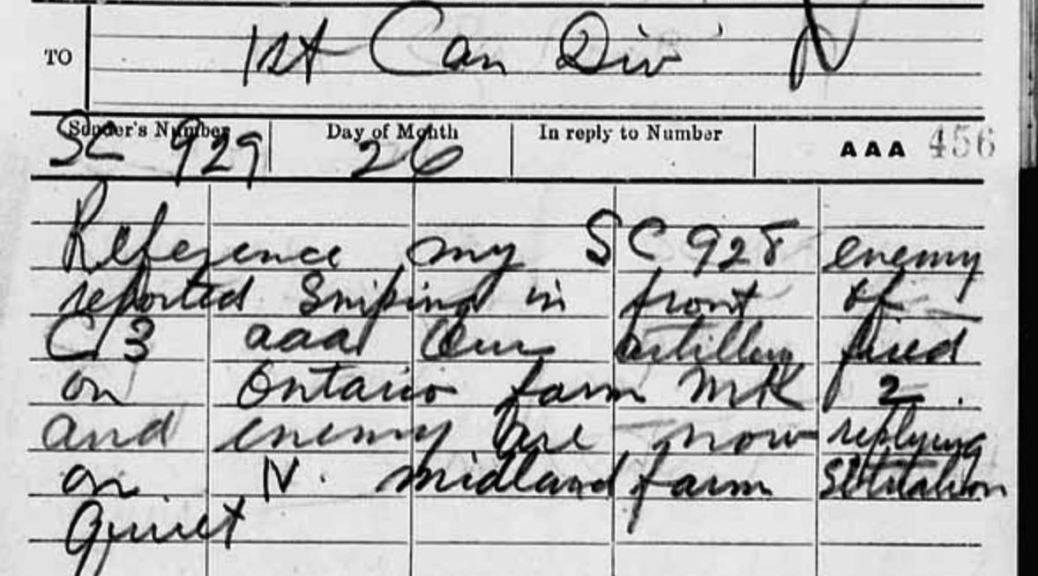 TO 1st Can Div
Sender's Number Day of Month In reply to Number AAA 456
SC 929 26
Reference my SC 928 enemy
reported Sniping in front of
C 3 aaa Our artillery fired
on Ontario farm
and enemy are now replying
on N. midland farm Situation
Quiet